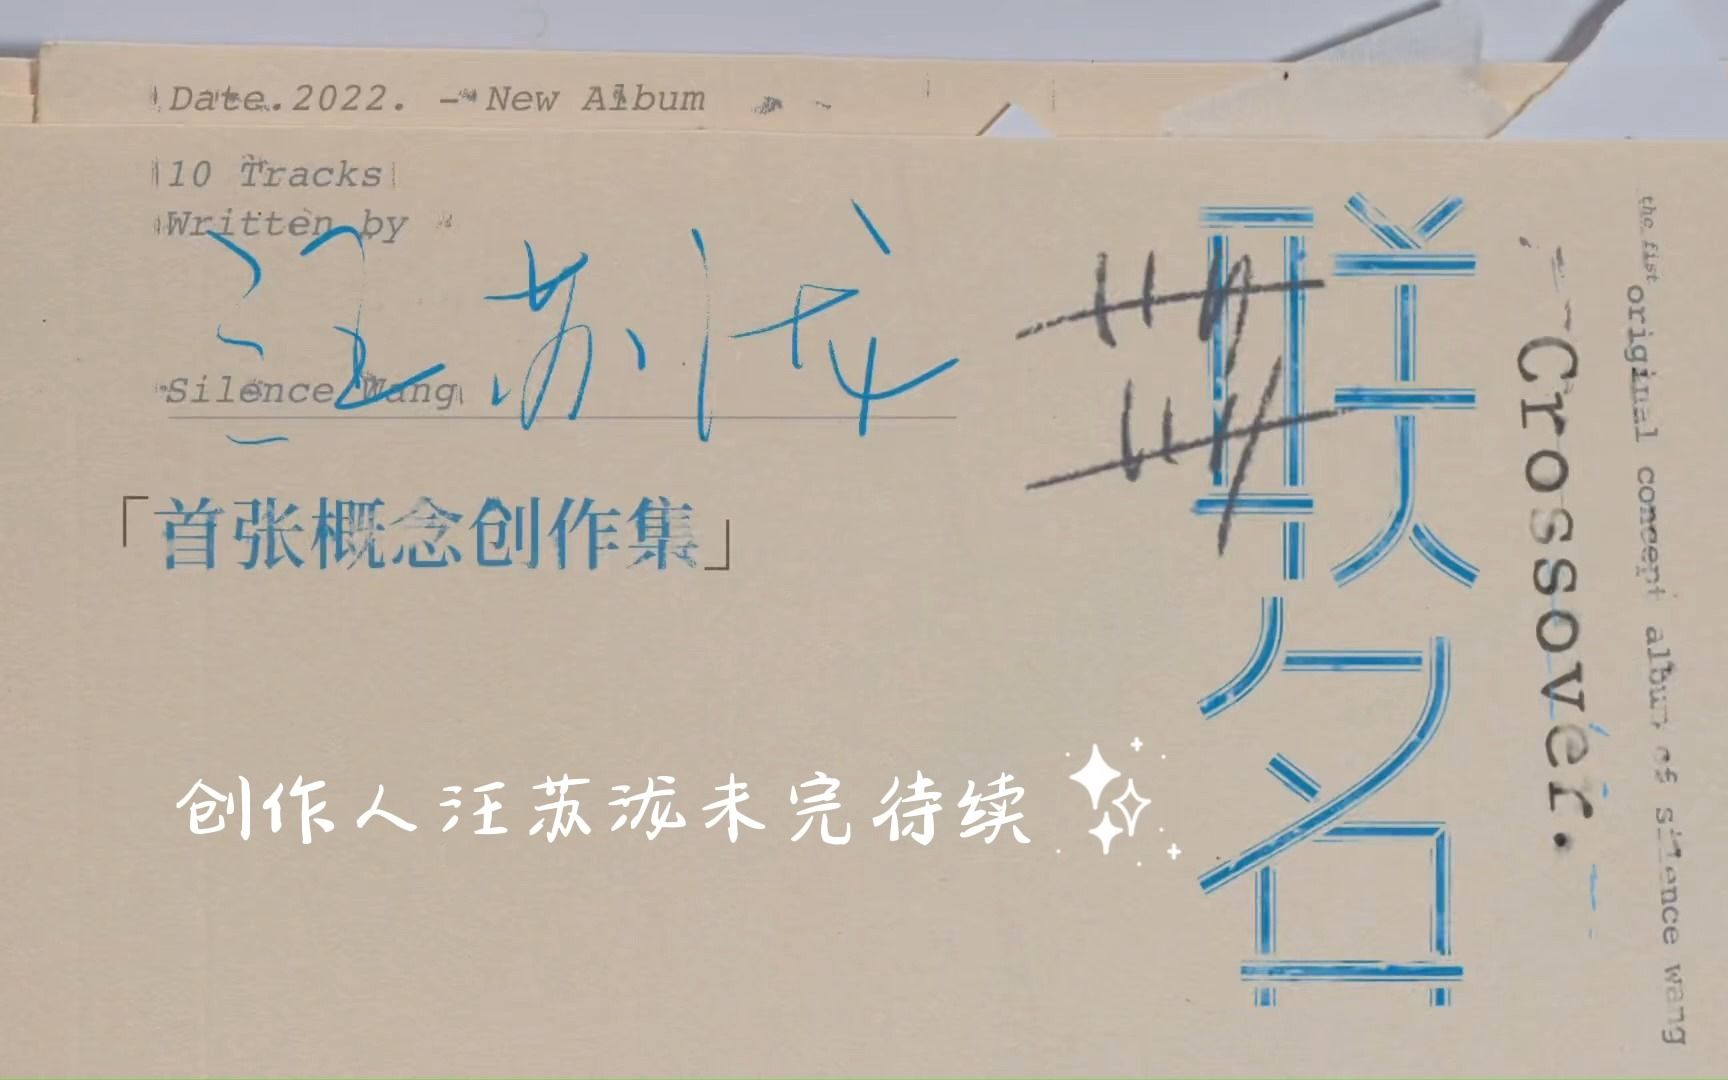 Date.2022. - New Album
10 Tracks
Written by
汪苏泷
Silence Wang
「首张概念创作集」
创作人汪苏泷未完待续
联名
Crossover.
the fist original concept album of silence wang